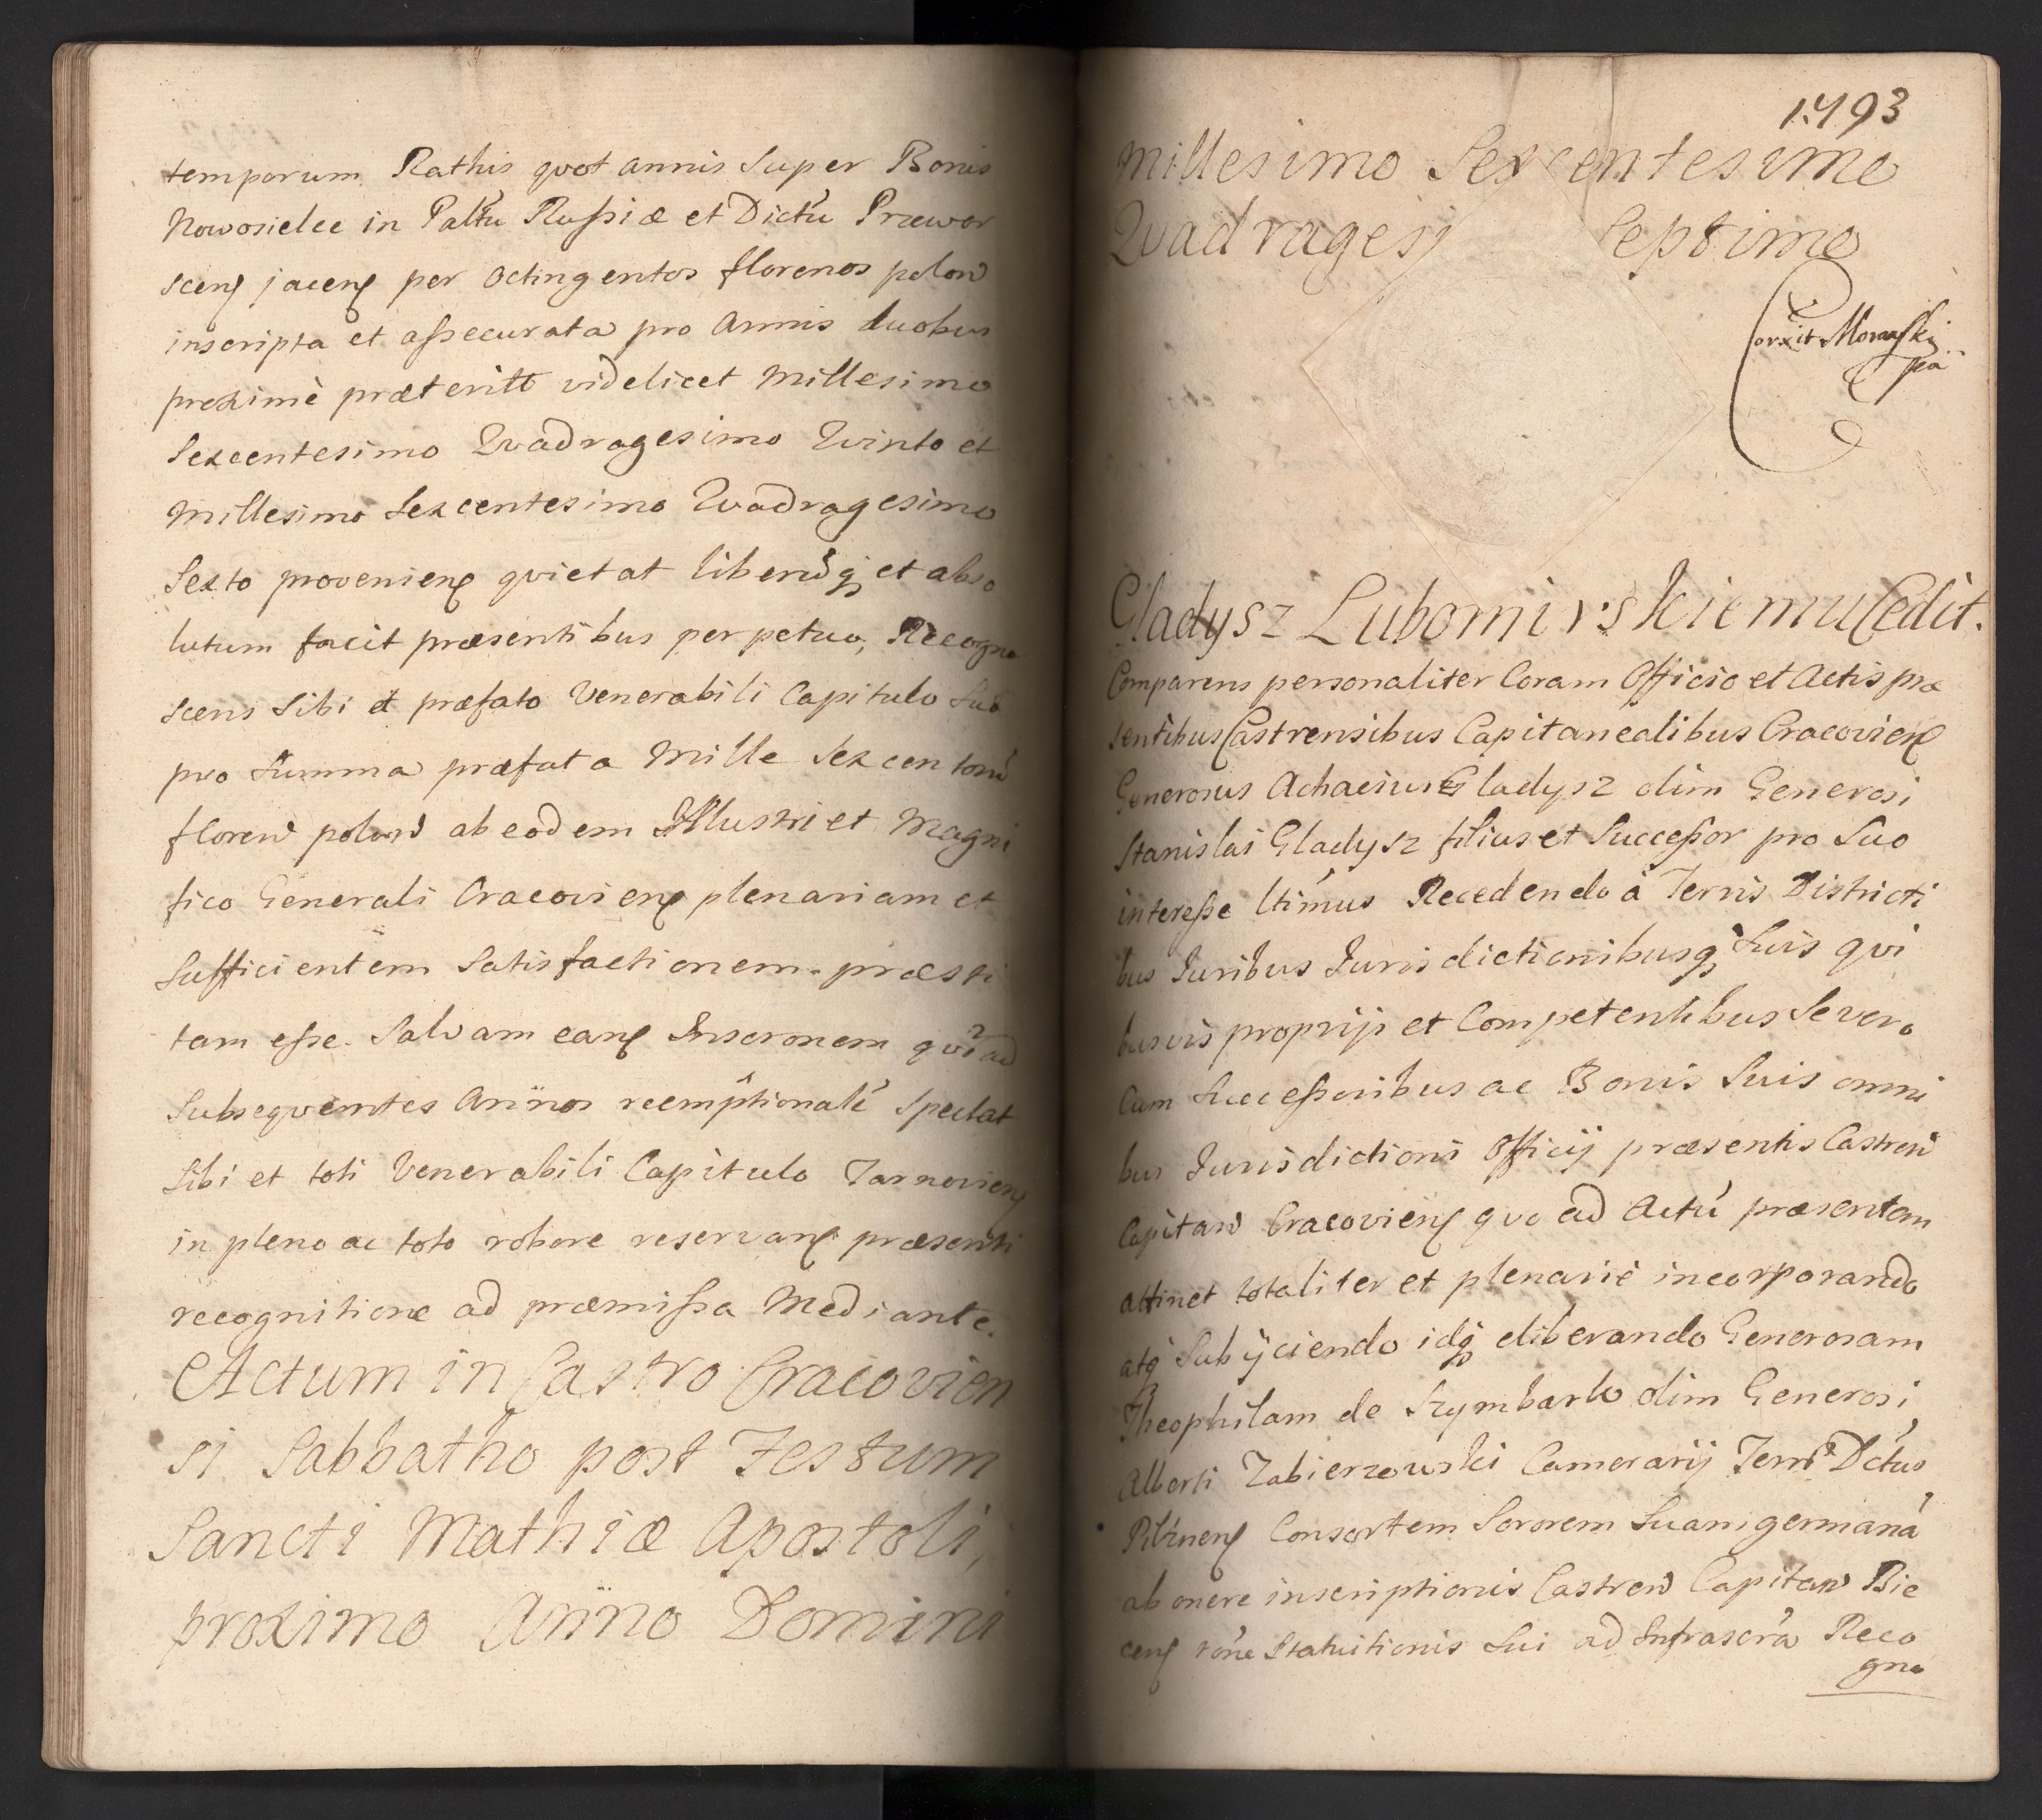 temporum Rathis qvot annis Super Bonis
Nowosielce in Paltu Russiæ et Dictu Przewor
scens jacens per octingentos florenos polon
inscripta et assecurata pro Annis duobus
proximè præteritt videlicet Millesimo
Sexcentesimo Qvadragesimo Qvinto et
Millesimo Sexcentesimo Qvadragesimo
Sexto proveniens qvietat liberuq et abso
lutum facit præsentibus perpetuo, Recogno
scens Sibi et præfato Venerabili Capitulo Suo
pro Summa præfata Mille Sexcentoru
floren polon ab eodem Illustri et Magni
fico Generali Cracoviens plenariam et
Sufficientem Satisfactionem præsti
tam esse. Salvam eans Inscronem qvo ad
Subseqventes Annos reemptionale Spectat
Sibi et toti Venerabili Capitulo Tarnoviens
in pleno ac toto robore reservans præsenti
recognitione ad præmissa Mediante.
Actum in Castro Cracovien
si Sabbatho post Festum
Sancti Mathiæ Apostoli,
proximo Anno Domini
1.493
Millesimo Sexcentesimo
Qvadragesi Septimo
Corxit Morawski
pa
Gladysz Lubomirskiemu Cedit.
Comparens personaliter Coram Officio et Actis præ
sentibus Castrensibus Capitanealibus Cracoviens
Generosus Achacius Gladysz olim Generosi
Stanislai Gladysz filius et Successor pro Suo
interesse ltimus Recedendo à Terris Districti
bus Iuribus Iurisdictionibusq Suis qvi
busvis proprijs et Competentibus Se vero
Cum Successoribus ac Bonis Suis omni
bus Iurisdictioni Officij præsentis Castren
Capitan Cracoviens qvo ad Actu præsentem
attinet totaliter et plenariè incorporando
atq Subijciendo idq eliberando Generosam
Theophilam de Szymbark olim Generosi
Alberti Zabierzowski Camerarij Terrr Dctus
Pilznens Consortem Sororem Suam germana
ab onere inscriptionis Castren Capitan Bie
cens rone Statuitionis Sui ad Infrascra Reco
gno